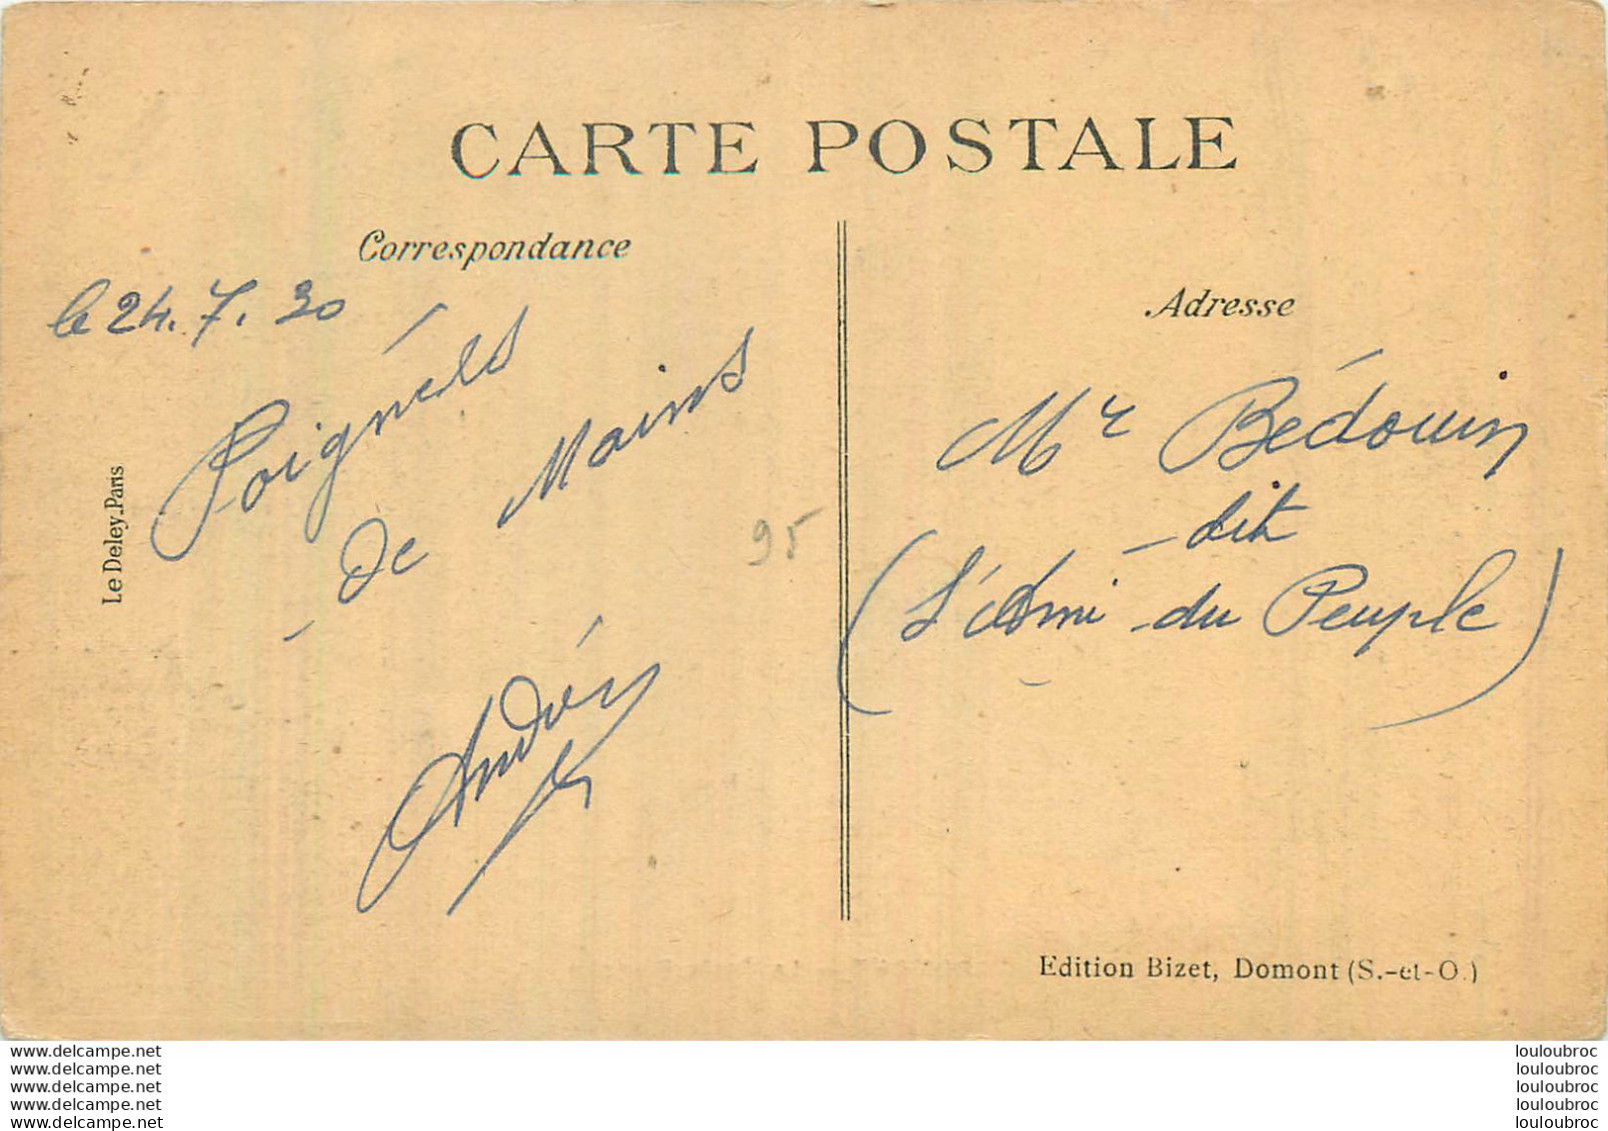 CARTE POSTALE
Correspondance
le 24.7.30
Poignées
de Mains
André
Le Deley_Paris
95
Adresse
Mr Bédouin
dit
(L'Ami du Peuple)
Edition Bizet, Domont (S.-et-O.)
www.delcampe.net
www.delcampe.net
www.delcampe.net
www.delcampe.net
www.delcampe.net
louloubroc
louloubroc
louloubroc
louloubroc
louloubroc